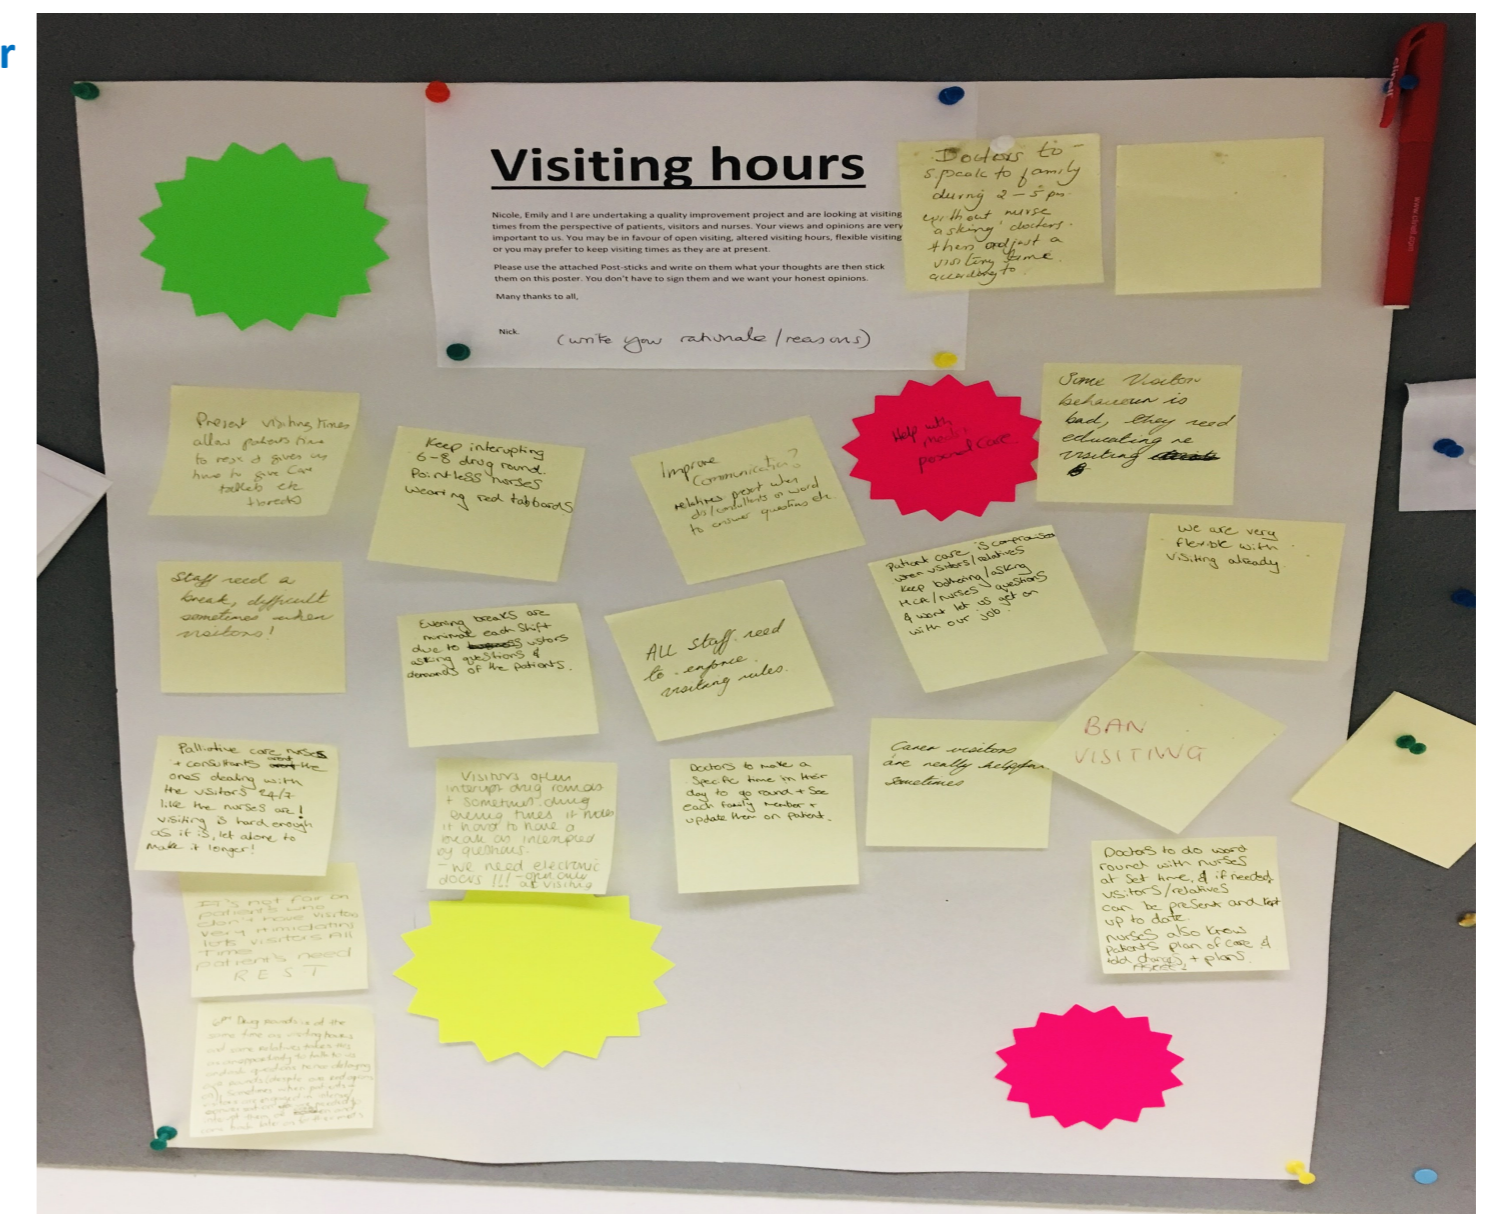 r
Visiting hours
Nicole, Emily and I are undertaking a quality improvement project and are looking at visiting
times from the perspective of patients, visitors and nurses. Your views and opinions are very
important to us. You may be in favour of open visiting, altered visiting hours, flexible visiting
or you may prefer to keep visiting times as they are at present.
Please use the attached Post-sticks and write on them what your thoughts are then stick
them on this poster. You don't have to sign them and we want your honest opinions.
Many thanks to all,
Nick.
(write your rationale/reasons)
Doctors to -
speak to family
during 2 - 5 pm.
without nurse
asking doctors.
then adjust a
visiting time.
according to.
Present visiting times
allow patients time
to rest & gives us
time to give care
toilets etc
Keep interupting
6-8 drug round.
Pointless nurses
wearing red tabbards
Improve
communication?
relatives present when
drs/consultants on ward
to answer questions etc.
Help with
meals
personal care
Some Visitors
behaviour is
bad, they need
educating re
visiting
Staff need a
break, difficult
sometimes when
visitors!
Evening breaks are
minimal each shift
due to visitors
asking questions &
demands of the patients.
ALL Staff need
to enforce
visiting rules.
Patient care is compromised
when visitors/relatives
keep bothering/asking
HCA/nurses questions
& wont let us get on
with our job.
We are very
flexible with
visiting already.
Palliative care nurses
+ consultants arent the
ones dealing with
the visitors 24/7
like the nurses are!
visiting is hard enough
as it is, let alone to
make it longer!
Visitors often
interupt drug rounds
+ sometimes during
evening times it makes
it hard to have a
break as interupted
by questions.
- We need electronic
doors !!! - open only
at visiting
Doctors to make a
specific time in their
day to go round + see
each family member +
update them on patient.
Carer visitors
are really helpful
sometimes
BAN
VISITING
Doctors to do ward
round with nurses
at set time, & if needed,
visitors/relatives
can be present and kept
up to date.
nurses also know
patients plan of care &
told changes + plans.
It's not fair on
patient's who
don't have visitors
very intimidating
lots visitors All
Time
patient's need
REST
6pm Drug rounds is at the
same time as visiting hours
and some relatives takes this
an opportunity to talk to us
and ask questions hence delaying